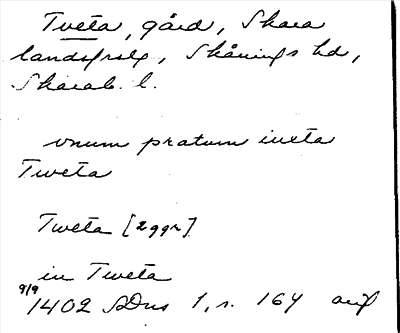 Tveta, gård, Skara
landsförs, Skånings hd,
Skarab. l.
unum pratum iuxta
Tweta
Tweta [2ggr]
in Tweta
9/9
1402 SDns 1, n. 164 avs